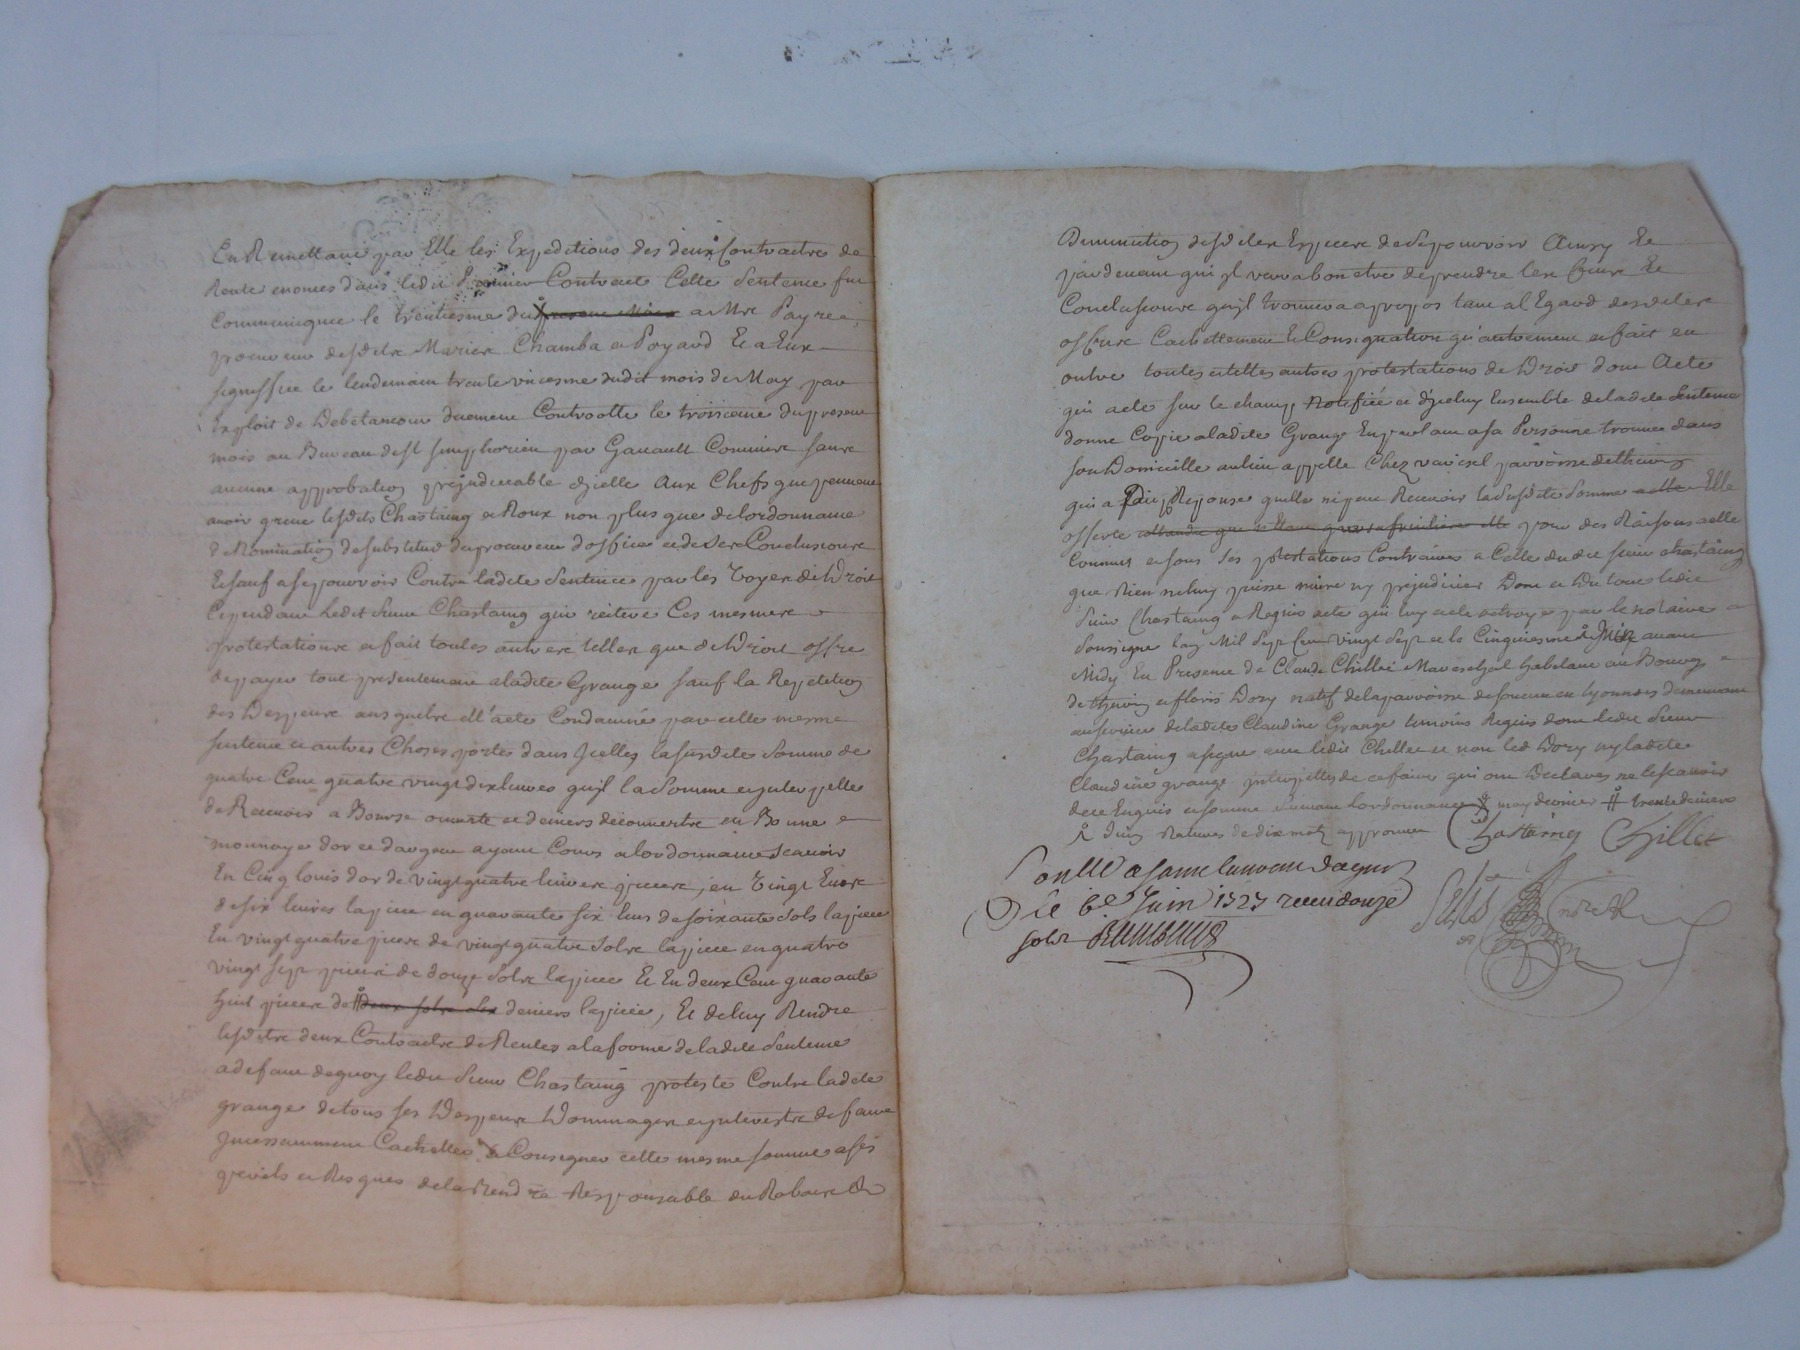 En Remettant par Elle les Expeditions des deux Contractes de
Rente enoncés dans ledit Premier Contract Cette Sentence fut
Communiquee le trentiesme du present Mois a Mre Payre
procureur desdits Mariez Chamba et Poyard Et a Eux
signiffiee le lendemain trente uniesme dudit mois de May par
Exploit de Debetancour duement Controlle le troisieme du present
mois au Bureau de St simphorien par Gavault Commis sans
aucune approbation prejudiciable d'jcelle aux Chefs que peuvent
avoir greve lesdits Chastaing et Roux non plus que de lordonnance
de Nomination de substitud du procureur doffice et de ses Conclusions
Et sauf a se pourvoir Contre ladite Sentence par les voyes de Droit
Cependant Ledit Sieur Chastaing qui reitere Ces mesmes
protestations et fait toutes autres telles que de Droit offre
de payer tout presentement a ladite Grange sauf la Repetition
des Despens ausquels elle a ete Condamnée par cette mesme
sentence et autres Choses portés dans jcelles la susdite Somme de
quatre Cent quatre vingt dix livres qu'jl la Somme et jnterpelle
de Recevoir a Bourse ouverte et deniers decouverts en Bonne
monnoye dor et dargent ayant Cours a lordonnance scavoir
En Cinq louis dor de vingt quatre livres piece, en vingt Ecus
de six livres la piece en quarante six Ecus de soixante sols la piece
En vingt quatre pieces de vingt quatre Sols la piece en quatre
vingt sept pieces de douze Sols la piece Et En deux Cent quarante
huit pieces de deux sols six deniers la piece, Et de luy Rendre
lesdits deux Contracts de Rentes a la forme de ladite Sentence
a defaut de quoy ledit Sieur Chastaing proteste Contre ladite
grange de tous ses Despens Dommages et jnterests de faire
jncessamment Cachetter et Consigner cette mesme somme a ses
perils et Risques de la Rendre Responsable du Rabais Et
Diminution desdites Especes de se pourvoir Ainsy Et
pardevant qui jl verra bon etre de prendre les fins Et
Conclusions qu'jl trouvera a propos tant al Egard desdites
offres Cachettement Et Consignation qu'autrement et fait en
outre toutes et telles autres protestations de Droit dont Acte
qui a ete sur le champ Notifiée et d'jceluy Ensemble de ladite Sentence
donné Copie a ladite Grange En parlant a sa Personne trouvee dans
son Domicille au lieu appelle Chez paroisse de
qui a fait Reponse qu'elle ne peut Recevoir la Susdite Somme a elle
offerte pour des Raisons a elle
Connues et sous ses protestations Contraires a Celle du dit sieur chastaing
que Rien ne luy puisse nuire ny prejudicier Dont et Du tout ledit
Sieur Chastaing a Requis acte qui luy a ete octroye par le notaire
Soussigne Lan Mil Sept Cent vingt Sept et le Cinquiesme avant
Midy En Presence de Claude Chillet Mareschal habitant au Bourg
de et floris Dory natif de la parroisse de en lyonnois demeurant
au service de ladite Claudine Grange temoins Requis dont ledit Sieur
Chastaing a signé avec ledit Chillet et non led Dory ny ladite
Claudine grange jnterpelles de ce faire qui ont Declares ne le scavoir
de ce Enquis et sommé Suivant lordonnance X may dernier # trente deniers
Juin Ratures de dix mots approuvées Chastaing Chillet
Conlle a
Le 6e Juin 1727 receu douze
sols